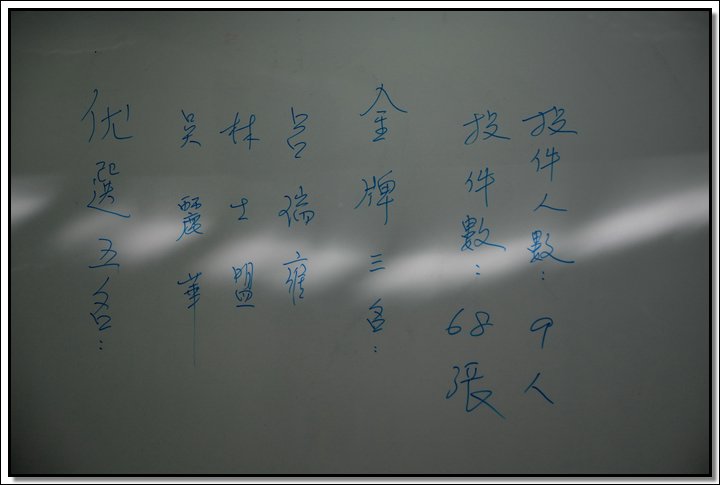 投件人數：9人
投件數：68張
金牌三名：
呂瑞雍
林士盟
吳麗華
优選五名：